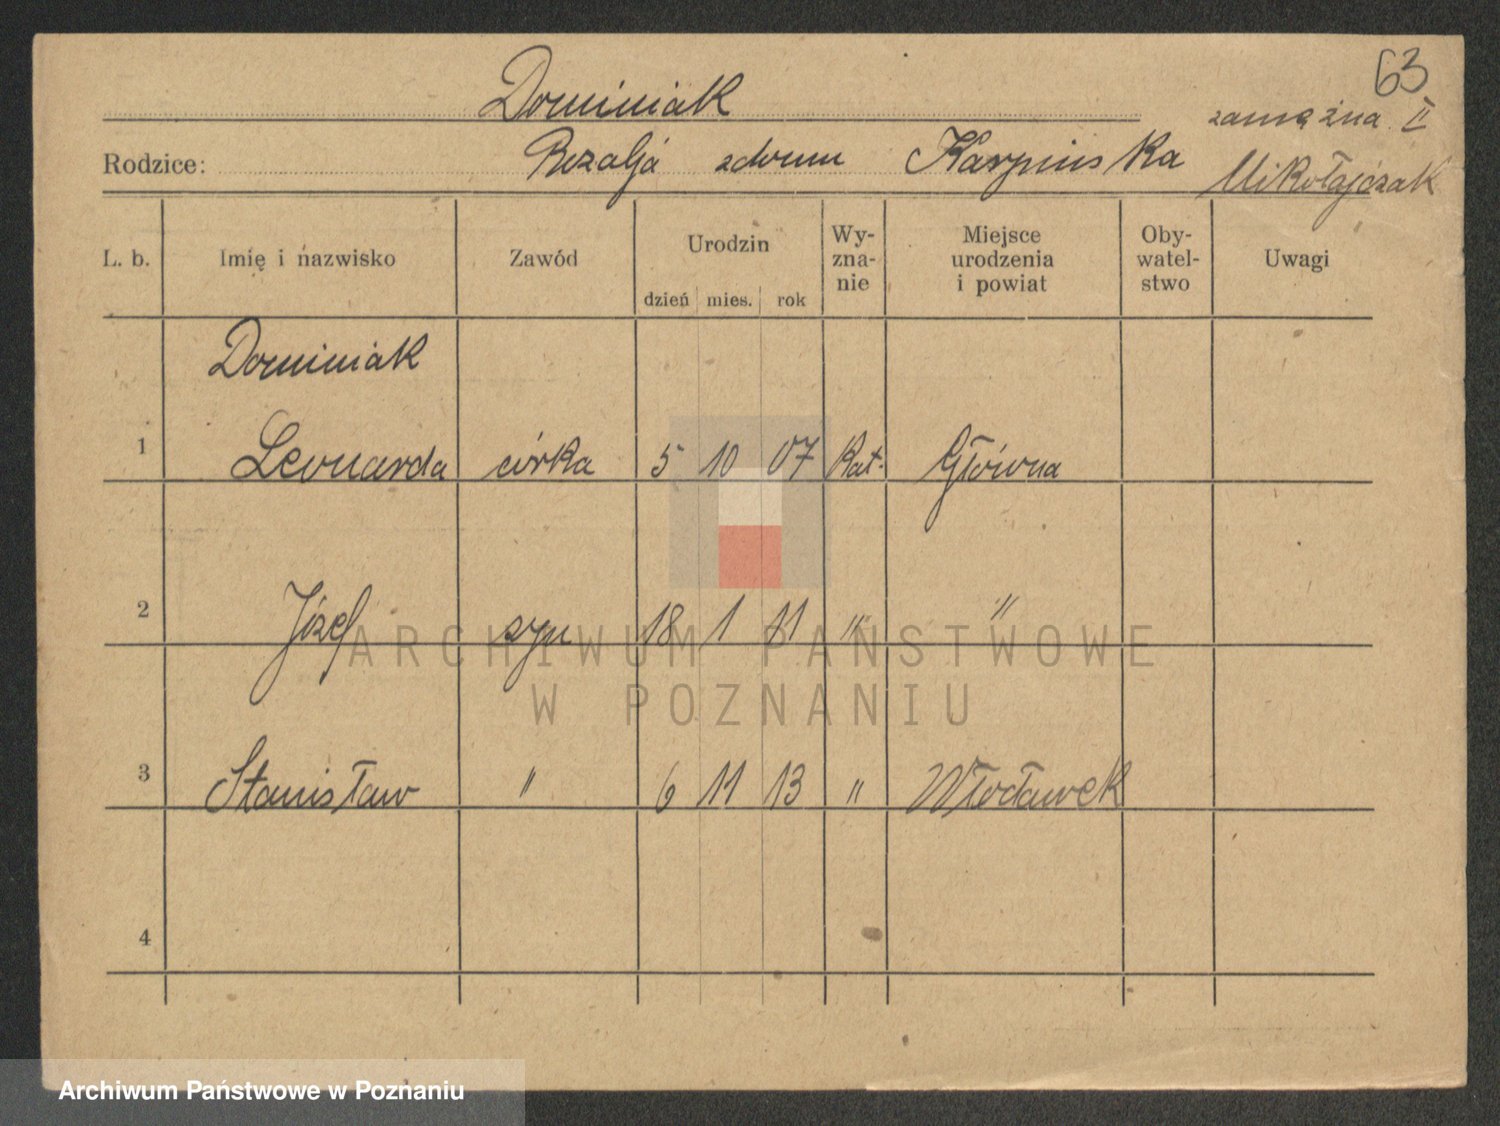 63
Dominiak
zamężna II
Rodzice: Rozalja zdomu Karpinska Mikołajczak
L. b. Imię i nazwisko Zawód Urodzin dzień mies. rok Wy-zna-nie Miejsce urodzenia i powiat Oby-watel-stwo Uwagi
Dominiak
1 Leonarda córka 5 10 07 Kat. Główna
2 Józef syn 18 1 11 " "
3 Stanisław " 6 11 13 " Włocławek
4
ARCHIWUM PAŃSTWOWE
W POZNANIU
Archiwum Państwowe w Poznaniu